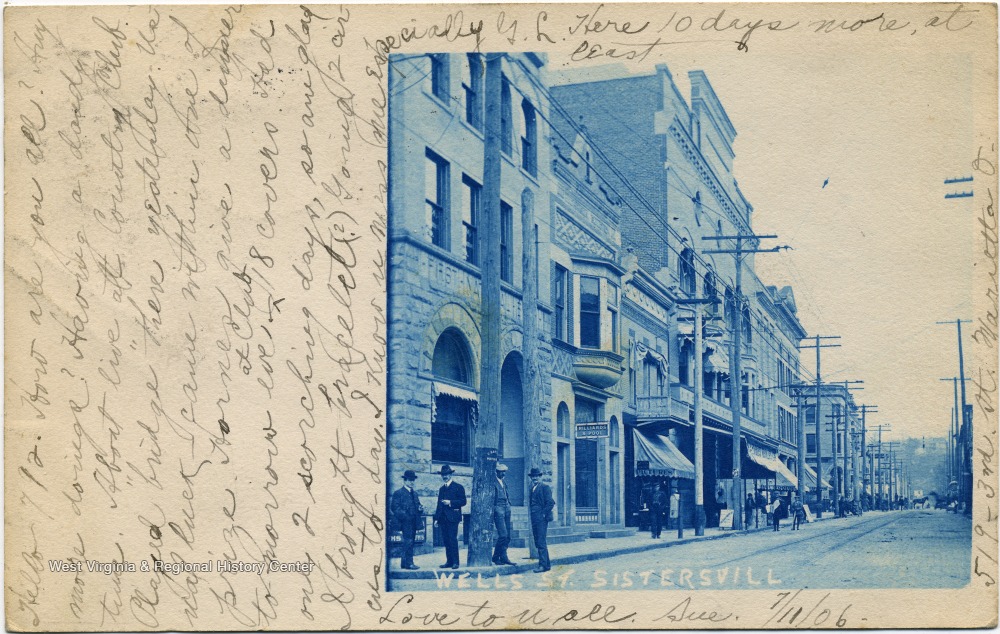 Hello 7/2. How are you all? Any
more dougie? Having a dandy
time. About live "att Country Club.
Played bridge there yesterday. Us
ual luck, came within one of
prize. Horner give a dinner
at Club
to-morrow eve - 18 covers. Had
on 2 scorching days, so am glad
I brought Going 2 cir
cus to-day. I know u miss me especially Y. L. Here 10 days more, at
least
FIRST
BILLIARDS
& POOL
WELLS ST. SISTERSVILL
Love to U all. Sue. 7/11/06-
519-3rd. St. Marietta O-
West Virginia & Regional History Center